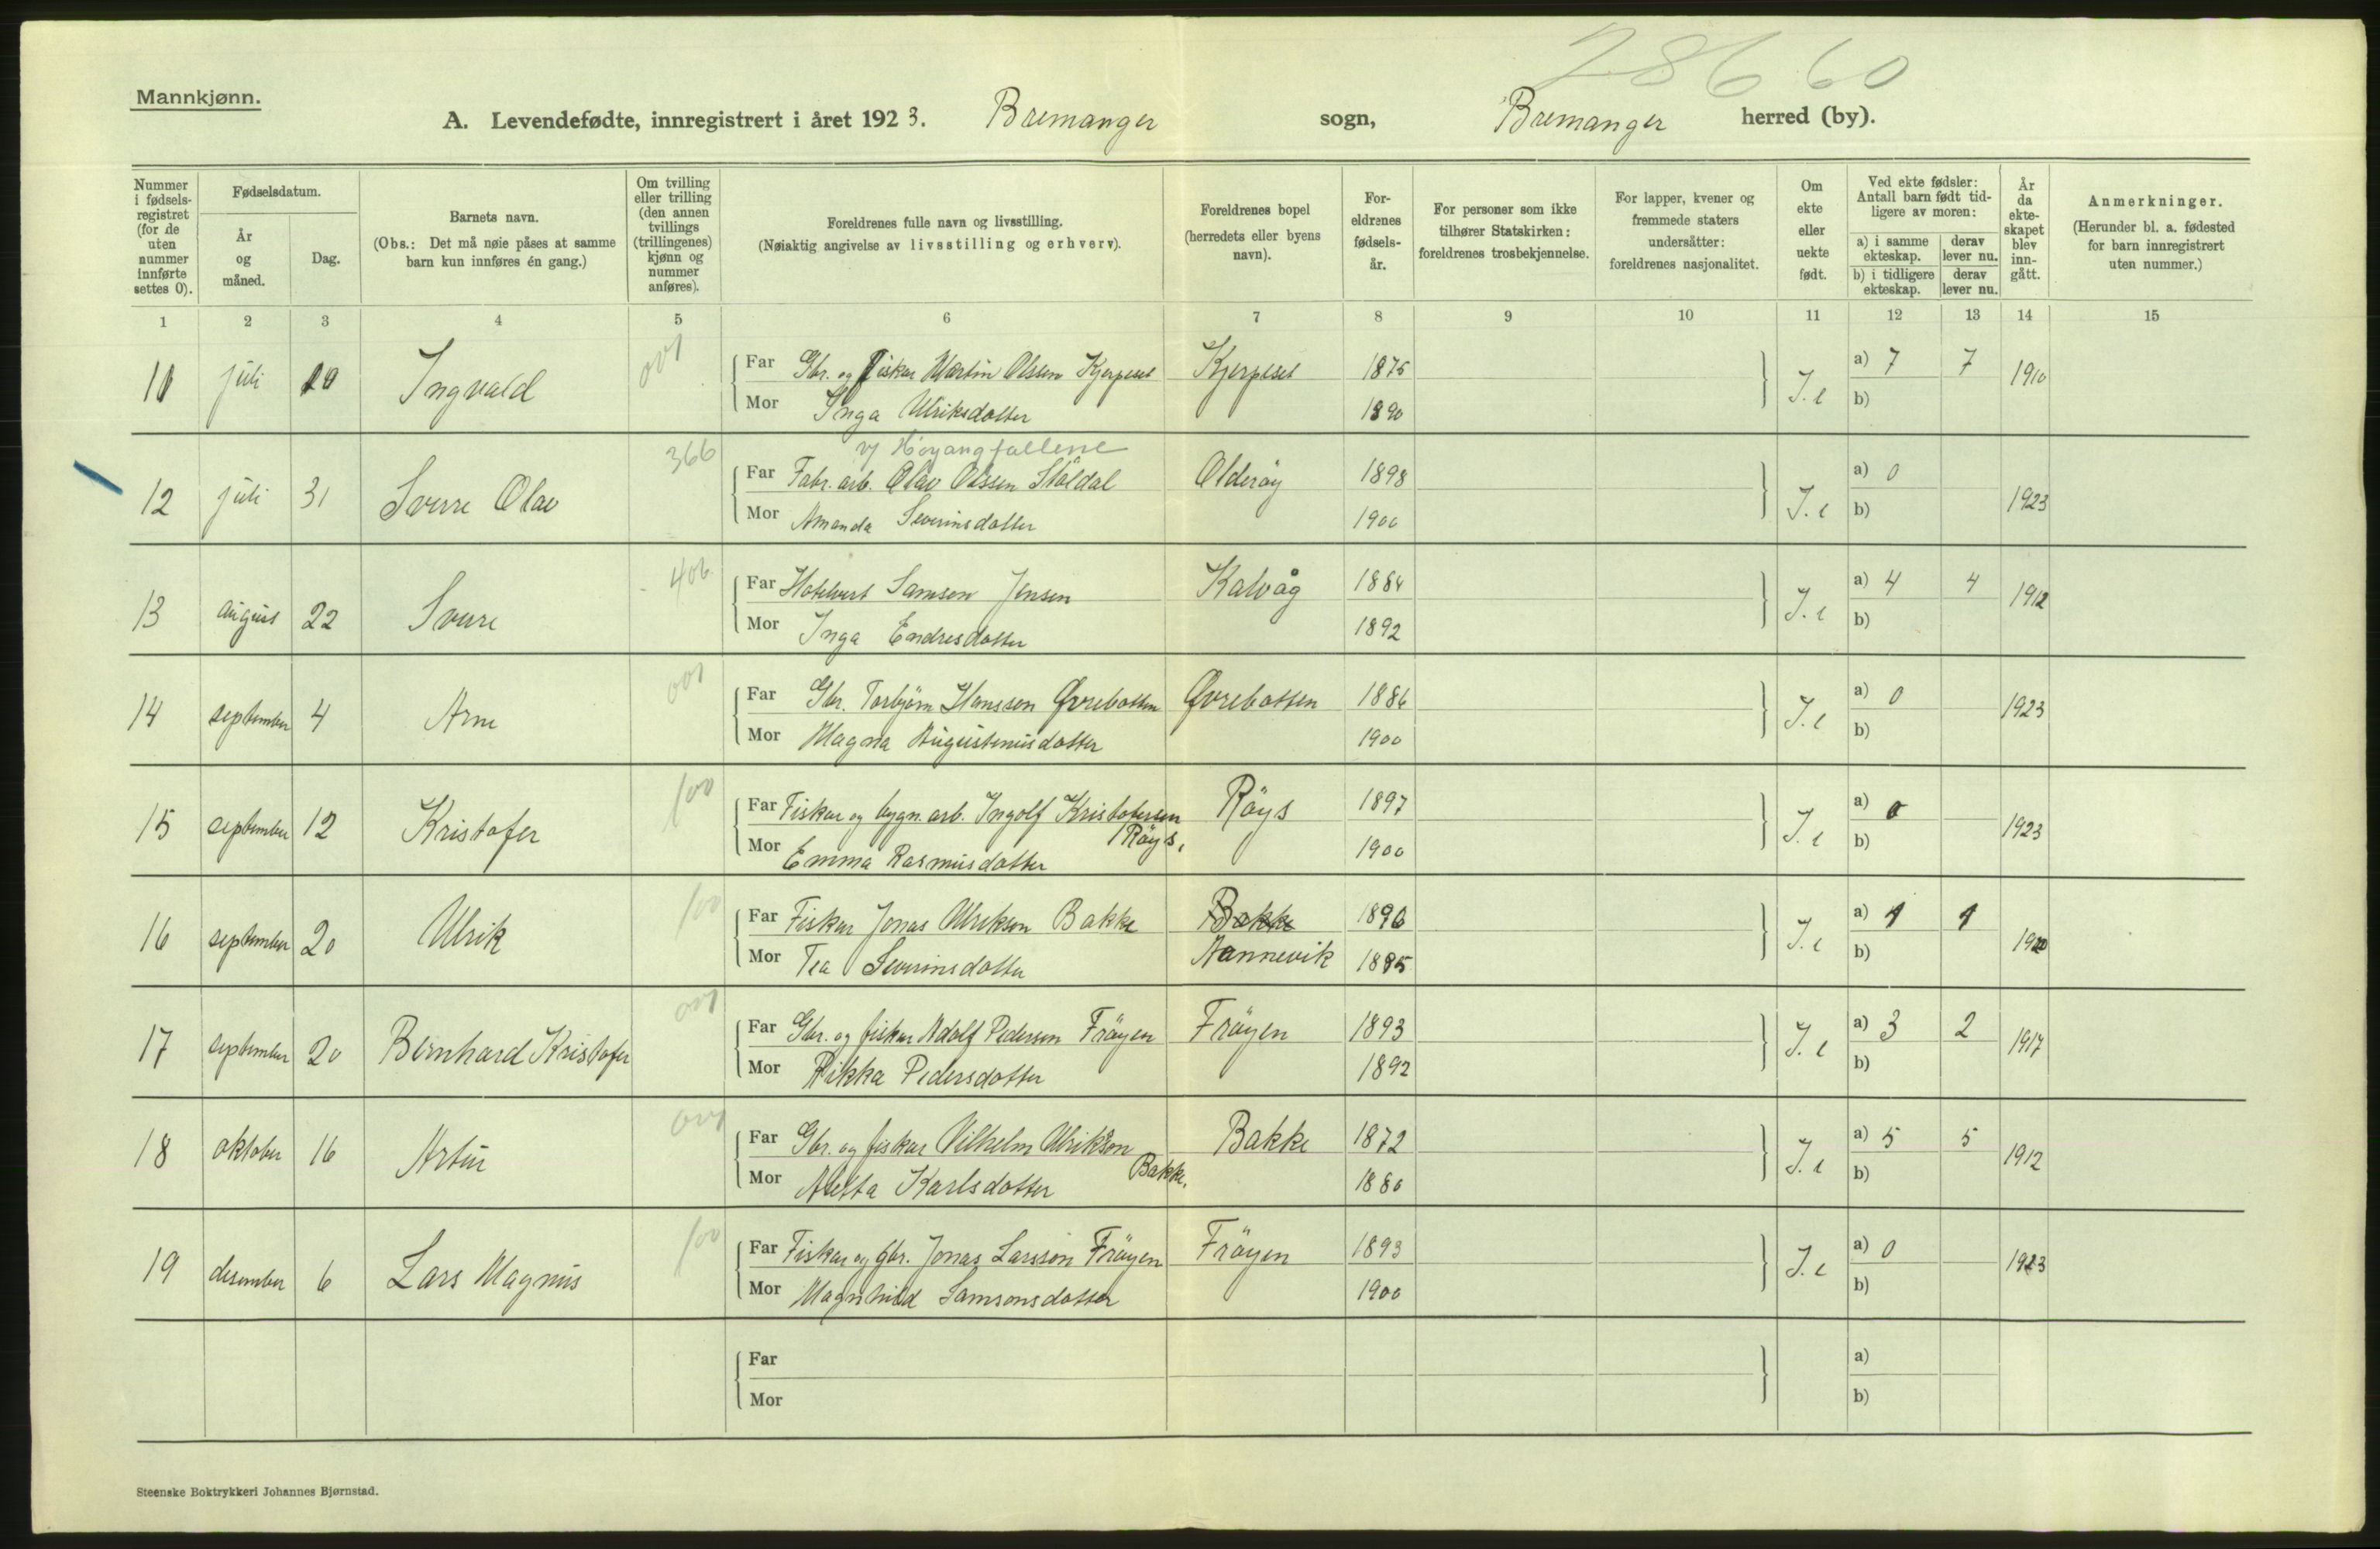 28660
Mannkjønn.
A. Levendefødte, innregistrert i året 1923. Bremanger sogn, Bremanger herred (by).
Nummer i fødselsregistret (for de uten nummer innførte settes 0).
Fødselsdatum.
År og måned.
Dag.
Barnets navn.
(Obs.: Det må nøie påses at samme barn kun innføres én gang.)
Om tvilling eller trilling (den annen tvillings (trillingenes) kjønn og nummer anføres).
Foreldrenes fulle navn og livsstilling.
(Nøiaktig angivelse av livsstilling og erhverv).
Foreldrenes bopel (herredets eller byens navn).
Foreldrenes fødselsår.
For personer som ikke tilhører Statskirken: foreldrenes trosbekjennelse.
For lapper, kvener og fremmede staters undersåtter: foreldrenes nasjonalitet.
Om ekte eller uekte født.
Ved ekte fødsler: Antall barn født tidligere av moren:
a) i samme ekteskap. derav lever nu.
b) i tidligere ekteskap. derav lever nu.
År da ekteskapet blev inngått.
Anmerkninger.
(Herunder bl. a. fødested for barn innregistrert uten nummer.)
1 2 3 4 5 6 7 8 9 10 11 12 13 14 15
11 juli 10 Ingvald 001 Far Gbr. og Fisker Martin Olssen Kjerpeset Kjerpeset 1875 I.e a) 7 7 1910
Mor Inga Ulriksdotter 1890 b)
v/ Høyangfallene
12 juli 31 Sverre Olav 366 Far Fabr. arb. Olav Olssen Ståldal Olderöy 1898 I.e a) 0 1923
Mor Amanda Severinsdotter 1900 b)
13 august 22 Sverre 406 Far Hotelvert Samson Jensen Kalvåg 1884 I.e a) 4 4 1912
Mor Inga Endresdotter 1892 b)
14 september 4 Arne 001 Far Gbr. Torbjörn Hansson Øvrebotten Øvrebotten 1886 I.e a) 0 1923
Mor Magna Augustinusdotter 1900 b)
15 september 12 Kristofer 100 Far Fisker og bygn. arb. Ingolf Kristofersen Röys 1897 I.e a) 0 1923
Röys.
Mor Emma Rasmusdotter 1900 b)
16 september 20 Ulrik 100 Far Fisker Jonas Ulrikson Bakke Bakke 1890 I.e a) 1 1 1920
Mor Tea Severinsdotter Nannevik 1895 b)
17 september 20 Bernhard Kristofer 001 Far Gbr. og fisker Adolf Pedersen Fröyen Fröyen 1893 I.e a) 3 2 1917
Mor Rikka Pedersdotter 1892 b)
18 oktober 16 Artur 001 Far Gbr. og fisker Vilhelm Ulrikson Bakke 1872 I.e a) 5 5 1912
Bakke.
Mor Aletta Karlsdotter 1880 b)
19 desember 6 Lars Magnus 100 Far Fisker og gbr. Jonas Larsson Fröyen Fröyen 1893 I.e a) 0 1923
Mor Magnhild Samsonsdotter 1900 b)
Far a)
Mor b)
Steenske Boktrykkeri Johannes Bjørnstad.